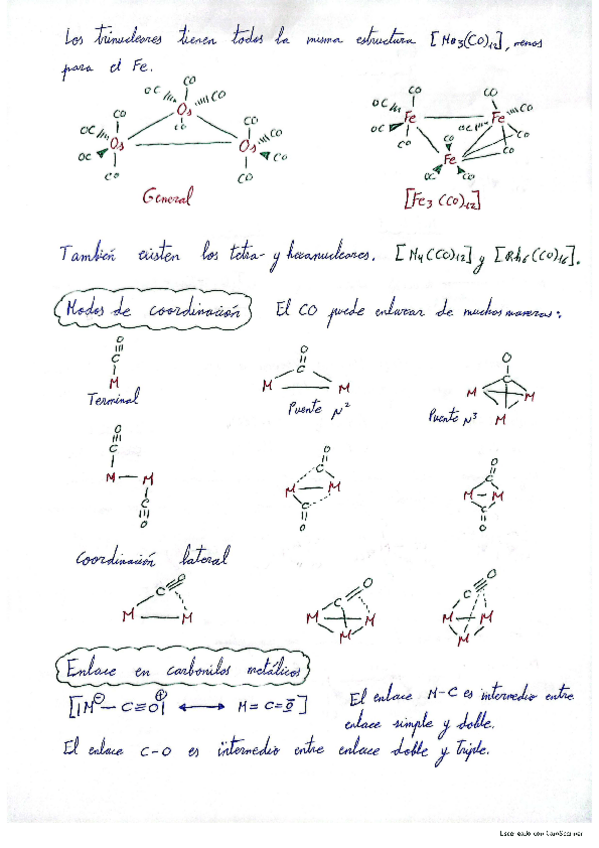 Los trinucleares tienen todos la misma estructura [Me3(CO)12], menos
para el Fe.
CO
OC CO
Os
CO CO CO
OC CO
Os Os
OC CO
CO CO
General
CO CO
OC CO
Fe Fe
OC OC CO
CO CO CO
Fe
OC CO
[Fe3(CO)12]
También existen los tetra- y hexanucleares. [M4(CO)12] y [Rh6(CO)16].
Modos de coordinación El CO puede enlazar de muchas maneras:
O
C
M
Terminal
O
C
M M
Puente μ2
O
C
M M
M
Puente μ3
O
C
M — M
C
O
O
C
M M
C
O
O
C
M — M
C
O
Coordinación lateral
C≡O
M M
C≡O
M M
M
C≡O
M M
M
Enlace en carbonilos metálicos
[|M⊖—C≡O⊕| ↔ M=C=O]
El enlace M-C es intermedio entre
enlace simple y doble.
El enlace C-O es intermedio entre enlace doble y triple.
Escaneado con CamScanner